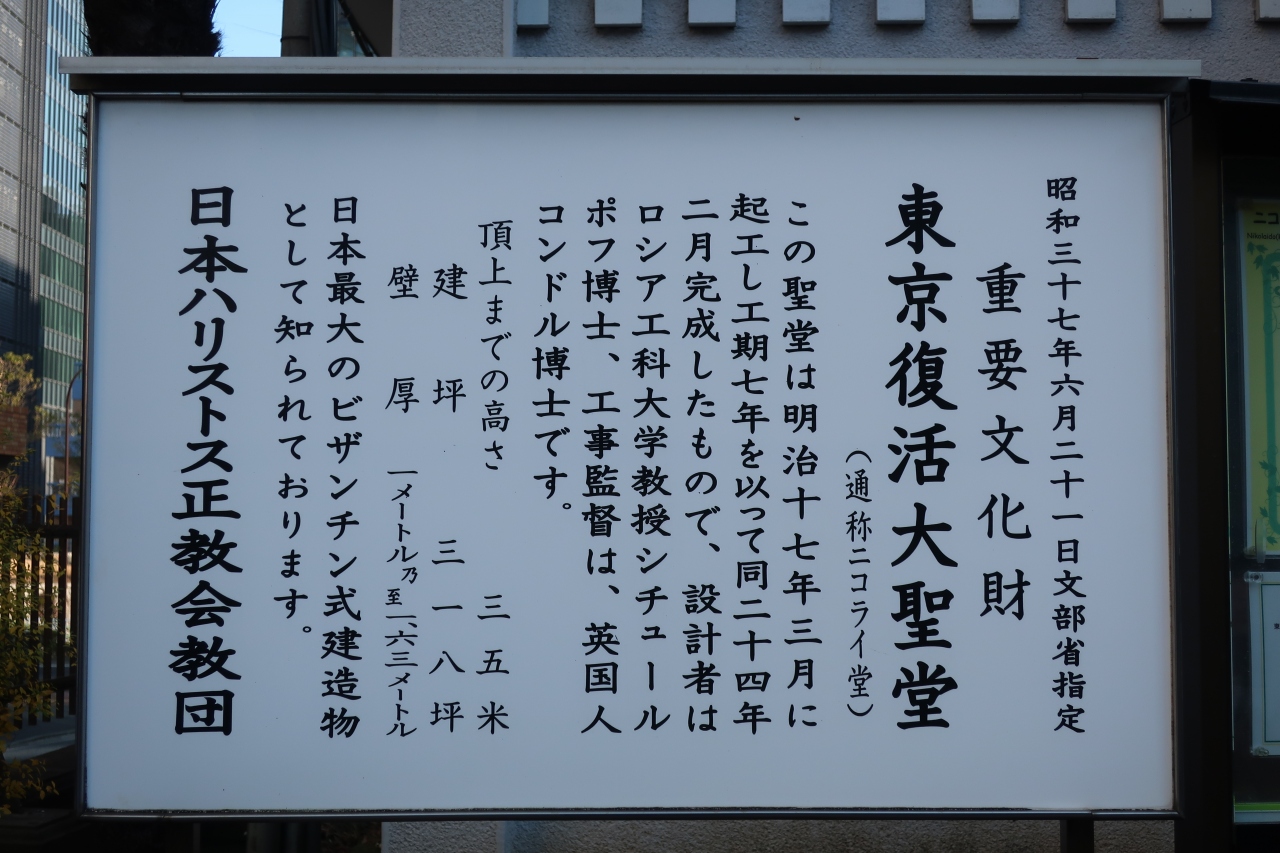 昭和三十七年六月二十一日文部省指定
重要文化財
東京復活大聖堂
(通称ニコライ堂)
この聖堂は明治十七年三月に
起工し工期七年を以って同二十四年
二月完成したもので、設計者は
ロシア工科大学教授シチュール
ポフ博士、工事監督は、英国人
コンドル博士です。
頂上までの高さ 三五米
建坪 三一八坪
壁厚 一メートル乃至一、六三メートル
日本最大のビザンチン式建造物
として知られております。
日本ハリストス正教会教団
ニコ